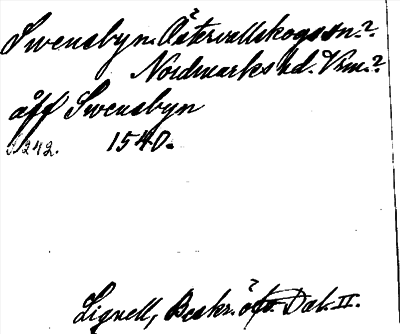 Swensbyn. Östervallskogs sn.?
Nordmarks hd. Vrm.?
åff Swensbyn
s. 242. 1540.
Lignell, Beskr. öfv. Dal. II.